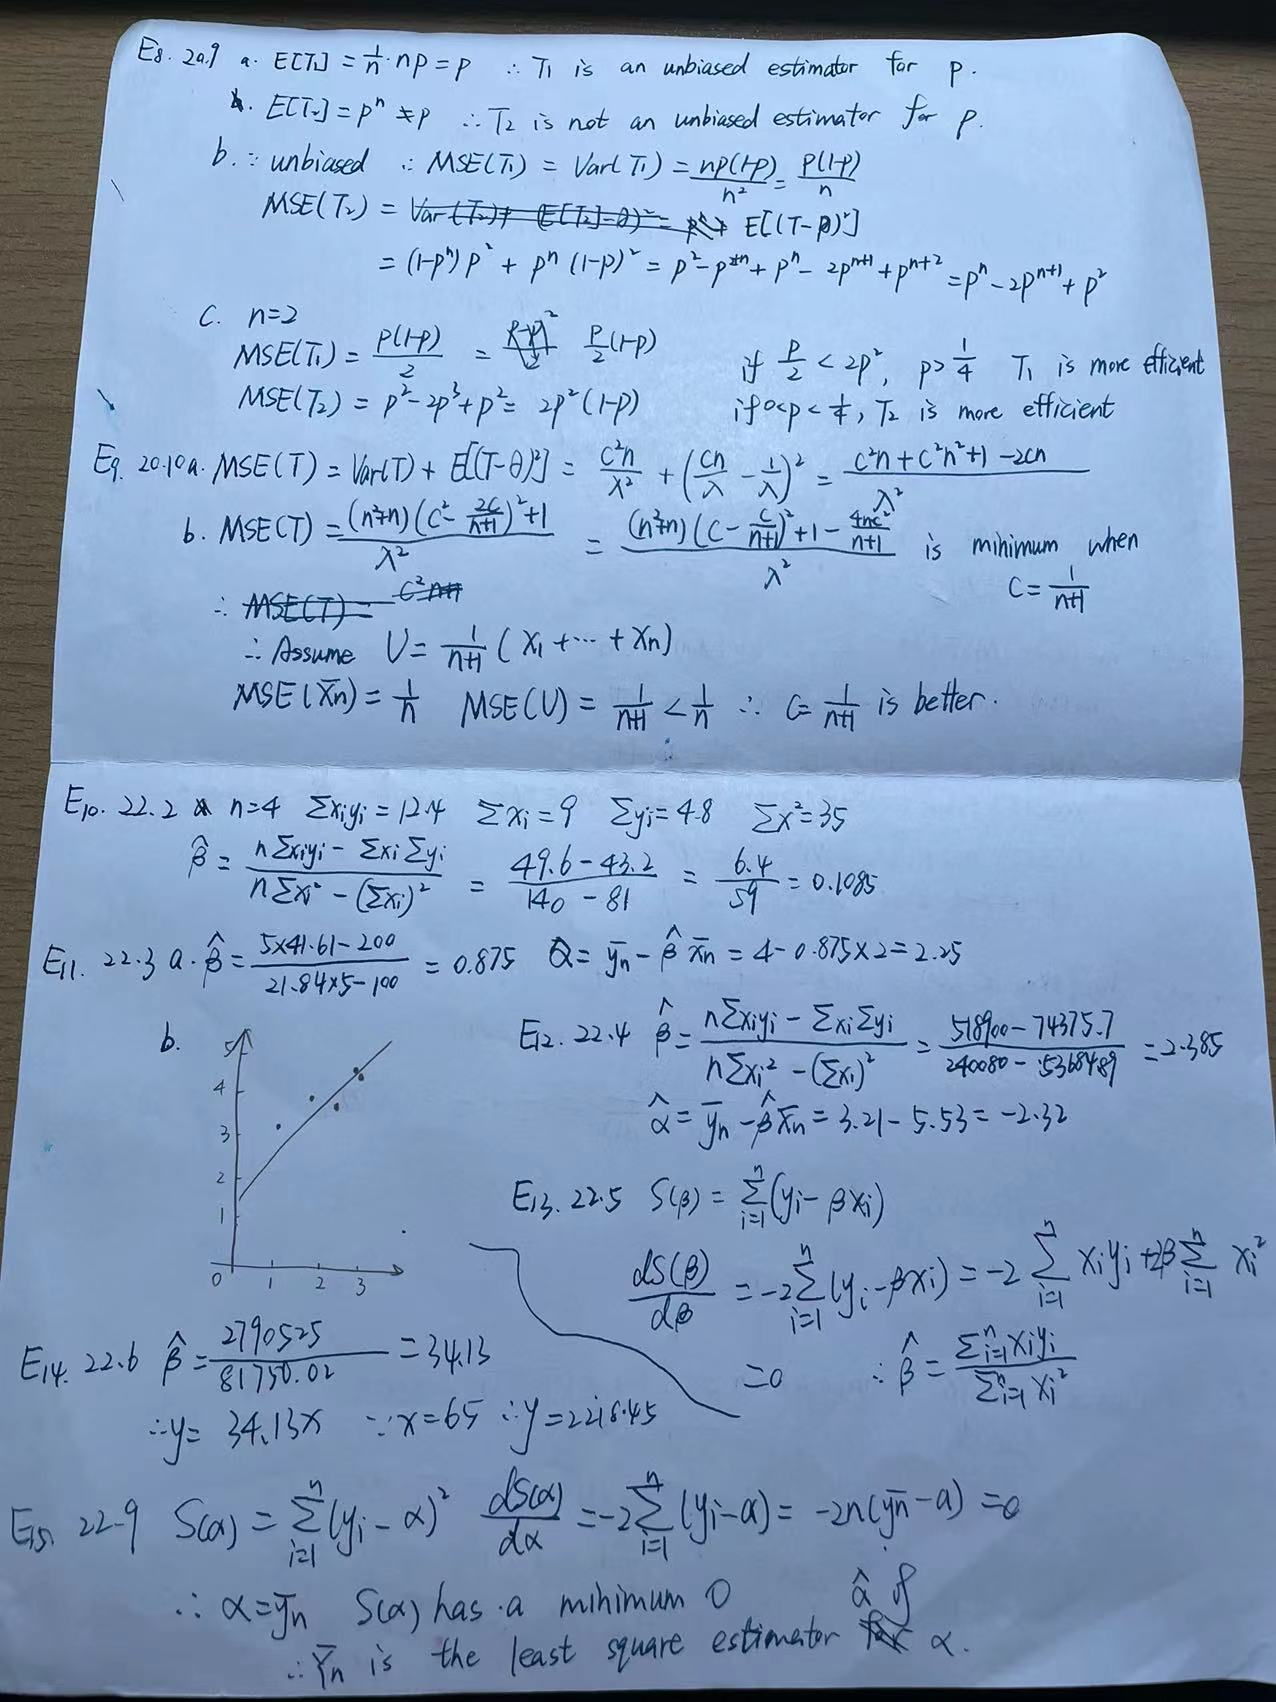 E8. 20.9 a. E[T₁] = 1/n · np = p ∴ T₁ is an unbiased estimator for p.
E[T₂] = pⁿ ≠ p ∴ T₂ is not an unbiased estimator for p.
b. ∵ unbiased ∴ MSE(T₁) = Var(T₁) = np(1-p)/n² = p(1-p)/n
MSE(T₂) = E[(T-p)²]
= (1-pⁿ)p² + pⁿ(1-p)² = p² - p²⁺ⁿ + pⁿ - 2pⁿ⁺¹ + pⁿ⁺² = pⁿ - 2pⁿ⁺¹ + p²
C. n=2
MSE(T₁) = p(1-p)/2 = p/2 (1-p) if p/2 < 2p², p > 1/4 T₁ is more efficient
MSE(T₂) = p² - 2p³ + p² = 2p²(1-p) if 0<p<1/4, T₂ is more efficient
E9. 20.10 a. MSE(T) = Var(T) + E[(T-θ)²] = c²n/λ² + (cn/λ - 1/λ)² = (c²n + c²n² + 1 - 2cn)/λ²
b. MSE(T) = ((n²+n)(c² - 2c/(n+1))² + 1)/λ² = ((n²+n)(c - c/(n+1))² + 1 - 4nc²/(n+1))/λ² is minimum when
C = 1/(n+1)
∴ Assume U = 1/(n+1) (X₁ + ··· + Xn)
MSE(X̄n) = 1/n MSE(U) = 1/(n+1) < 1/n ∴ C = 1/(n+1) is better.
E10. 22.2 n=4 Σxiyi = 12.4 Σxi = 9 Σyi = 4.8 Σx² = 35
β̂ = (nΣxiyi - ΣxiΣyi)/(nΣxi² - (Σxi)²) = (49.6 - 43.2)/(140 - 81) = 6.4/59 = 0.1085
E11. 22.3 a. β̂ = (5×41.61 - 200)/(21.84×5 - 100) = 0.875 α = ȳn - β̂x̄n = 4 - 0.875×2 = 2.25
b.
5
4
3
2
1
0 1 2 3
E12. 22.4 β̂ = (nΣxiyi - ΣxiΣyi)/(nΣxi² - (Σxi)²) = (518900 - 74375.7)/(240080 - 53684.89) = 2.385
α̂ = ȳn - β̂x̄n = 3.21 - 5.53 = -2.32
E13. 22.5 S(β) = Σⁿᵢ₌₁(yi - βxi)
dS(β)/dβ = -2Σⁿᵢ₌₁(yi - βxi) = -2Σⁿᵢ₌₁ xiyi + 2βΣⁿᵢ₌₁ xi²
=0 ∴ β̂ = Σⁿᵢ₌₁xiyi/Σⁿᵢ₌₁xi²
E14. 22.6 β̂ = 2790525/81750.02 = 34.13
∴ y = 34.13x ∵ x=65 ∴ y=2218.45
E15. 22.9 S(α) = Σⁿᵢ₌₁(yi - α)² dS(α)/dα = -2Σⁿᵢ₌₁(yi - α) = -2n(ȳn - α) = 0
∴ α = ȳn S(α) has a minimum 0
∴ Ȳn is the least square estimator α̂ of α.